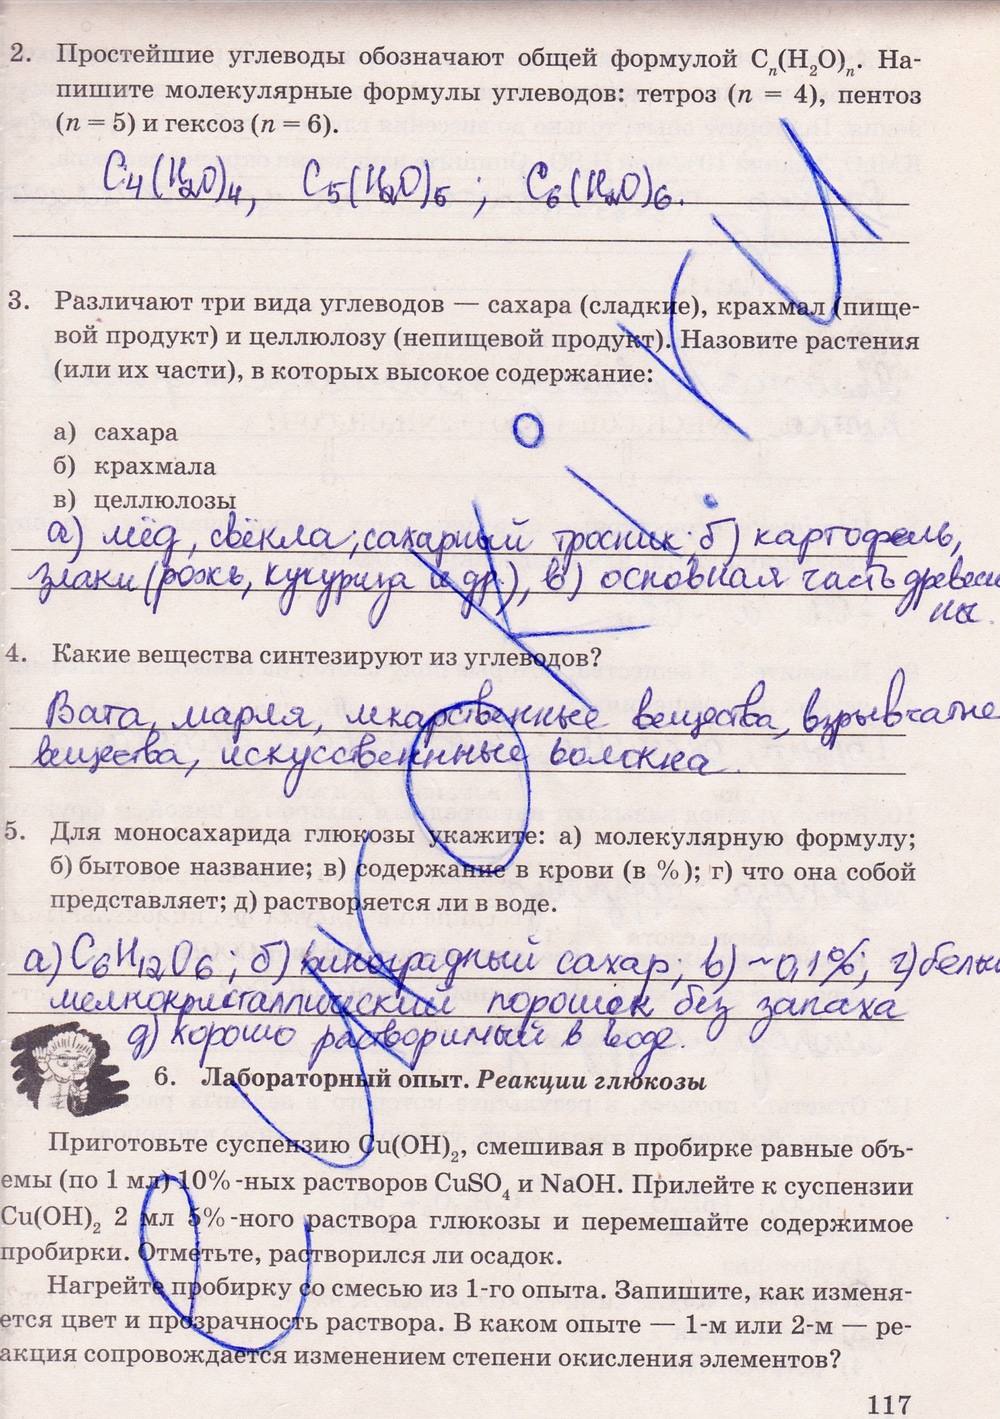 2. Простейшие углеводы обозначают общей формулой Cₙ(H₂O)ₙ. На-
пишите молекулярные формулы углеводов: тетроз (n = 4), пентоз
(n = 5) и гексоз (n = 6).
C₄(H₂O)₄, C₅(H₂O)₅; C₆(H₂O)₆.
3. Различают три вида углеводов — сахара (сладкие), крахмал (пище-
вой продукт) и целлюлозу (непищевой продукт). Назовите растения
(или их части), в которых высокое содержание:
а) сахара
б) крахмала
в) целлюлозы
а) мёд, свёкла; сахарный тросник; б) картофель,
злаки (рожь, кукуруза и др.), в) основная часть древеси
ны.
4. Какие вещества синтезируют из углеводов?
Вата, марля, лекарственные вещества, взрывчатые
вещества, искусственные волокна.
5. Для моносахарида глюкозы укажите: а) молекулярную формулу;
б) бытовое название; в) содержание в крови (в %); г) что она собой
представляет; д) растворяется ли в воде.
а) C₆H₁₂O₆; б) виноградный сахар; в) ~0,1%; г) белый
мелкокристаллический порошок без запаха
д) хорошо растворимый в воде.
6. Лабораторный опыт. Реакции глюкозы
Приготовьте суспензию Cu(OH)₂, смешивая в пробирке равные объ-
емы (по 1 мл) 10%-ных растворов CuSO₄ и NaOH. Прилейте к суспензии
Cu(OH)₂ 2 мл 5%-ного раствора глюкозы и перемешайте содержимое
пробирки. Отметьте, растворился ли осадок.
Нагрейте пробирку со смесью из 1-го опыта. Запишите, как изменя-
ется цвет и прозрачность раствора. В каком опыте — 1-м или 2-м — ре-
акция сопровождается изменением степени окисления элементов?
117